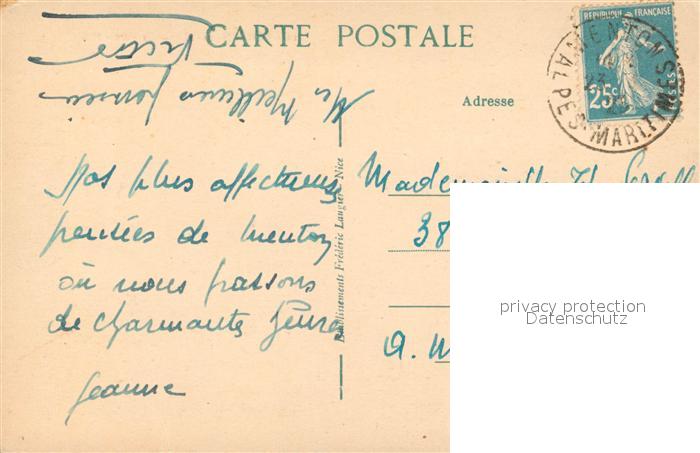 CARTE POSTALE
RÉPUBLIQUE FRANÇAISE
25c
POSTES
MENTON
ALPES-MARITIMES
Adresse
Mes meilleures pensées
Nos plus affectueuses
pensées de Menton
où nous passons
de charmantes heures
Jeanne
Etablissements Frédéric Laugier - Nice
Mademoiselle
38
A. M
privacy protection
Datenschutz